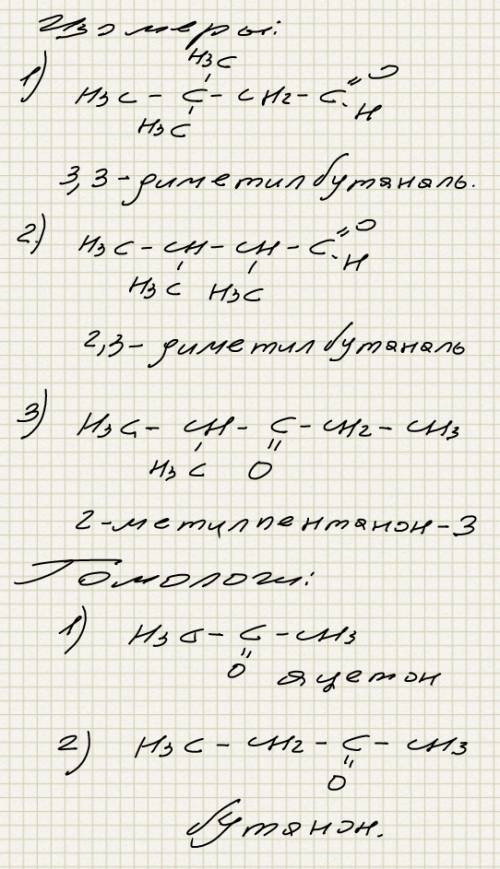 Изомеры:
H3C
1) H3C - C - CH2 - C =O
H3C H
3,3-диметилбутаналь.
2.) H3C - CH - CH - C =O
H3C H3C H
2,3-диметилбутаналь
3) H3C - CH - C - CH2 - CH3
H3C O
2-метилпентанон-3
Гомологи:
1) H3C - C - CH3
O ацетон
2) H3C - CH2 - C - CH3
O
бутанон.